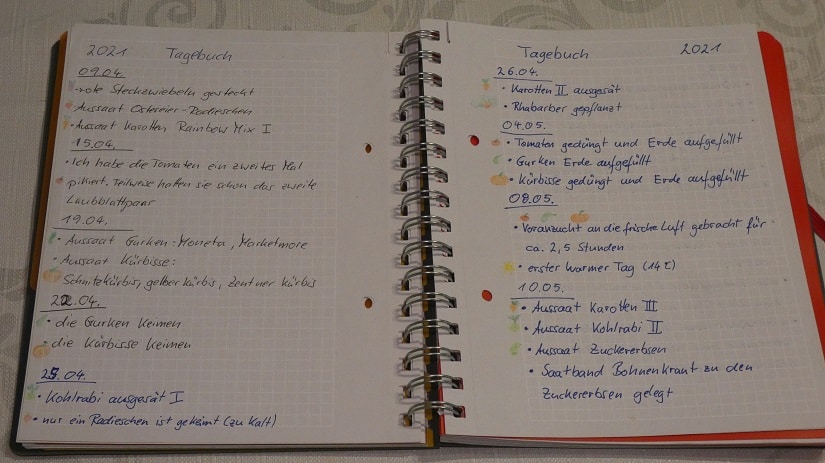 2021 Tagebuch
09.04.
rote Steckzwiebeln gesteckt
• Aussaat Ostereier-Radieschen
• Aussaat Karotten Rainbow Mix I
15.04.
• Ich habe die Tomaten ein zweites Mal
pikiert. Teilweise hatten sie schon das zweite
Laubblattpaar
19.04.
• Aussaat Gurken: Moneta, Marketmore
• Aussaat Kürbisse:
Schnitzkürbis, gelber Kürbis, Zentner Kürbis
22.04.
• die Gurken keimen
• die Kürbisse keimen
25.04.
• Kohlrabi ausgesät I
• nur ein Radieschen ist gekeimt (zu kalt)
Tagebuch 2021
26.04.
• Karotten II ausgesät
• Rhabarber gepflanzt
04.05.
• Tomaten gedüngt und Erde aufgefüllt
• Gurken Erde aufgefüllt
• Kürbisse gedüngt und Erde aufgefüllt
08.05.
• Voranzucht an die frische Luft gebracht für
ca. 2,5 Stunden
• erster warmer Tag (14°C)
10.05.
• Aussaat Karotten III
• Aussaat Kohlrabi II
• Aussaat Zuckererbsen
• Saatband Bohnenkraut zu den
Zuckererbsen gelegt